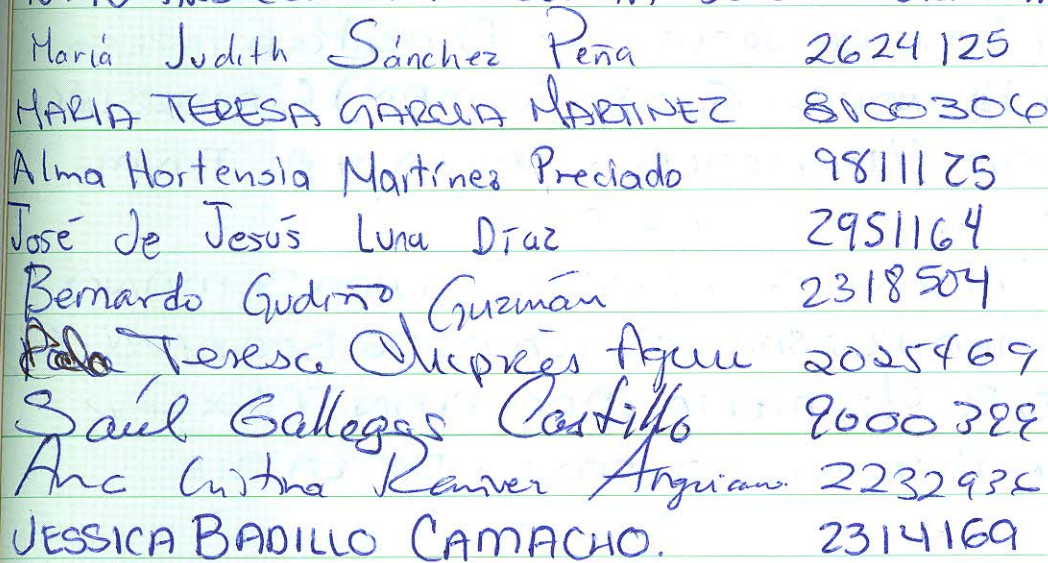 María Judith Sánchez Peña 2624125
MARIA TERESA GARCIA MARTINEZ
Alma Hortensia Martínez Preciado 9811125
José de Jesús Luna Díaz 2951164
Bernardo Gudiño Guzmán 2318504
Teresa 2025469
Saúl Gallegos Castillo
Ana Cristina Ramirez Anguiano
JESSICA BADILLO CAMACHO. 2314169